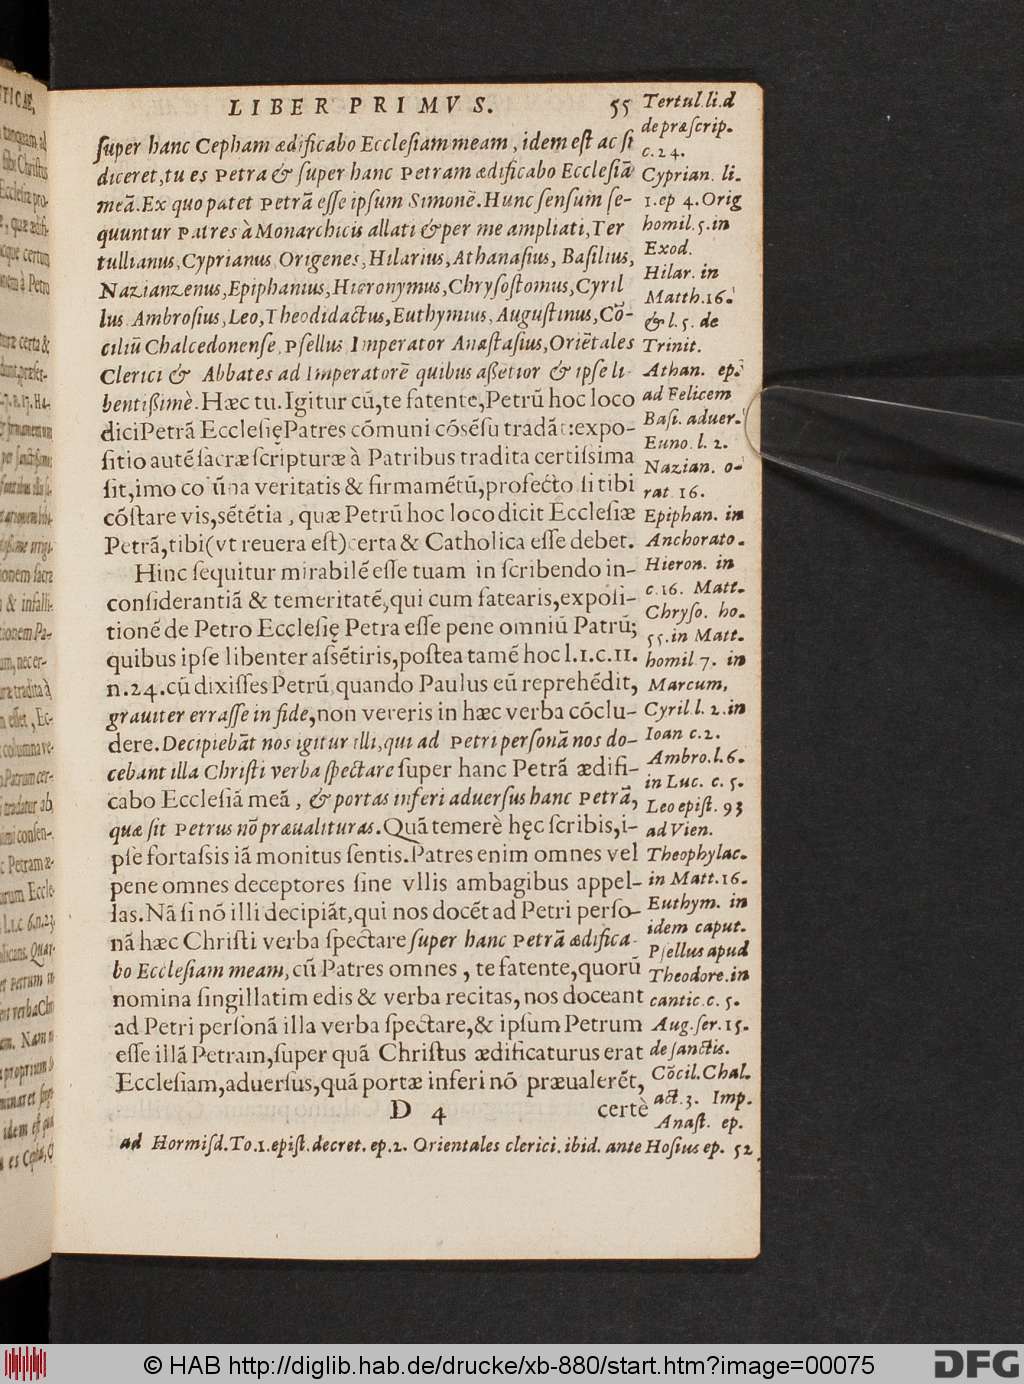 LIBER PRIMVS. 55
super hanc Cepham ædificabo Ecclesiam meam, idem est ac si
diceret, tu es Petra & super hanc Petram ædificabo Ecclesiā
meā. Ex quo patet Petrā esse ipsum Simonē. Hunc sensum se-
quuntur Patres à Monarchicis allati & per me ampliati, Ter
tullianus, Cyprianus, Origenes, Hilarius, Athanasius, Basilius,
Nazianzenus, Epiphanius, Hieronymus, Chrysostomus, Cyril
lus, Ambrosius, Leo, Theodidactus, Euthymius, Augustinus, Cō-
ciliū Chalcedonense, Psellus Imperator Anastasius, Oriētales
Clerici & Abbates ad Imperatorē quibus aßētior & ipse li-
bentißimè. Hæc tu. Igitur cū, te fatente, Petrū hoc loco
dici Petrā Ecclesię Patres cōmuni cōsēsu tradāt: expo-
sitio autē sacræ scripturæ à Patribus tradita certissima
sit, imo co ūna veritatis & firmamētū, profecto si tibi
cōstare vis, sētētia, quæ Petrū hoc loco dicit Ecclesiæ
Petrā, tibi (vt reuera est) certa & Catholica esse debet.
Hinc sequitur mirabilē esse tuam in scribendo in-
considerantiā & temeritatē, qui cum fatearis, exposi-
tionē de Petro Ecclesię Petra esse pene omniū Patrū;
quibus ipse libenter assētiris, postea tamē hoc l.1.c.11.
n.24. cū dixisses Petrū, quando Paulus eū reprehēdit,
grauiter errasse in fide, non vereris in hæc verba cōclu-
dere. Decipiebāt nos igitur illi, qui ad Petri personā nos do-
cebant illa Christi verba spectare super hanc Petrā ædifi-
cabo Ecclesiā meā, & portas inferi aduersus hanc Petrā,
quæ sit Petrus nō præualituras. Quā temerè hęc scribis, i-
pse fortassis iā monitus sentis. Patres enim omnes vel
pene omnes deceptores sine vllis ambagibus appel-
las. Nā si nō illi decipiāt, qui nos docēt ad Petri perso-
nā hæc Christi verba spectare super hanc Petrā ædifica-
bo Ecclesiam meam, cū Patres omnes, te fatente, quorū
nomina singillatim edis & verba recitas, nos doceant
ad Petri personā illa verba spectare, & ipsum Petrum
esse illā Petram, super quā Christus ædificaturus erat
Ecclesiam, aduersus, quā portæ inferi nō præualerēt,
D 4 certè
Tertul. li. d
de præscrip.
c. 24.
Cyprian. li.
1. ep 4. Orig
homil. 5. in
Exod.
Hilar. in
Matth. 16.
& l. 5. de
Trinit.
Athan. ep.
ad Felicem
Basi. aduer.
Euno. l. 2.
Nazian. o-
rat 16.
Epiphan. in
Anchorato.
Hieron. in
c. 16. Matt.
Chryso. ho.
55. in Matt.
homil 7. in
Marcum,
Cyril l. 2. in
Ioan c. 2.
Ambro. l. 6.
in Luc. c. 5.
Leo epist. 93
ad Vien.
Theophylac.
in Matt. 16.
Euthym. in
idem caput.
Psellus apud
Theodore. in
cantic. c. 5.
Aug. ser. 15.
de sanctis.
Cōcil. Chal.
act. 3. Imp.
Anast. ep.
ad Hormisd. To. 1. epist. decret. ep. 2. Orientales clerici. ibid. ante Hosius ep. 52
© HAB http://diglib.hab.de/drucke/xb-880/start.htm?image=00075
DFG